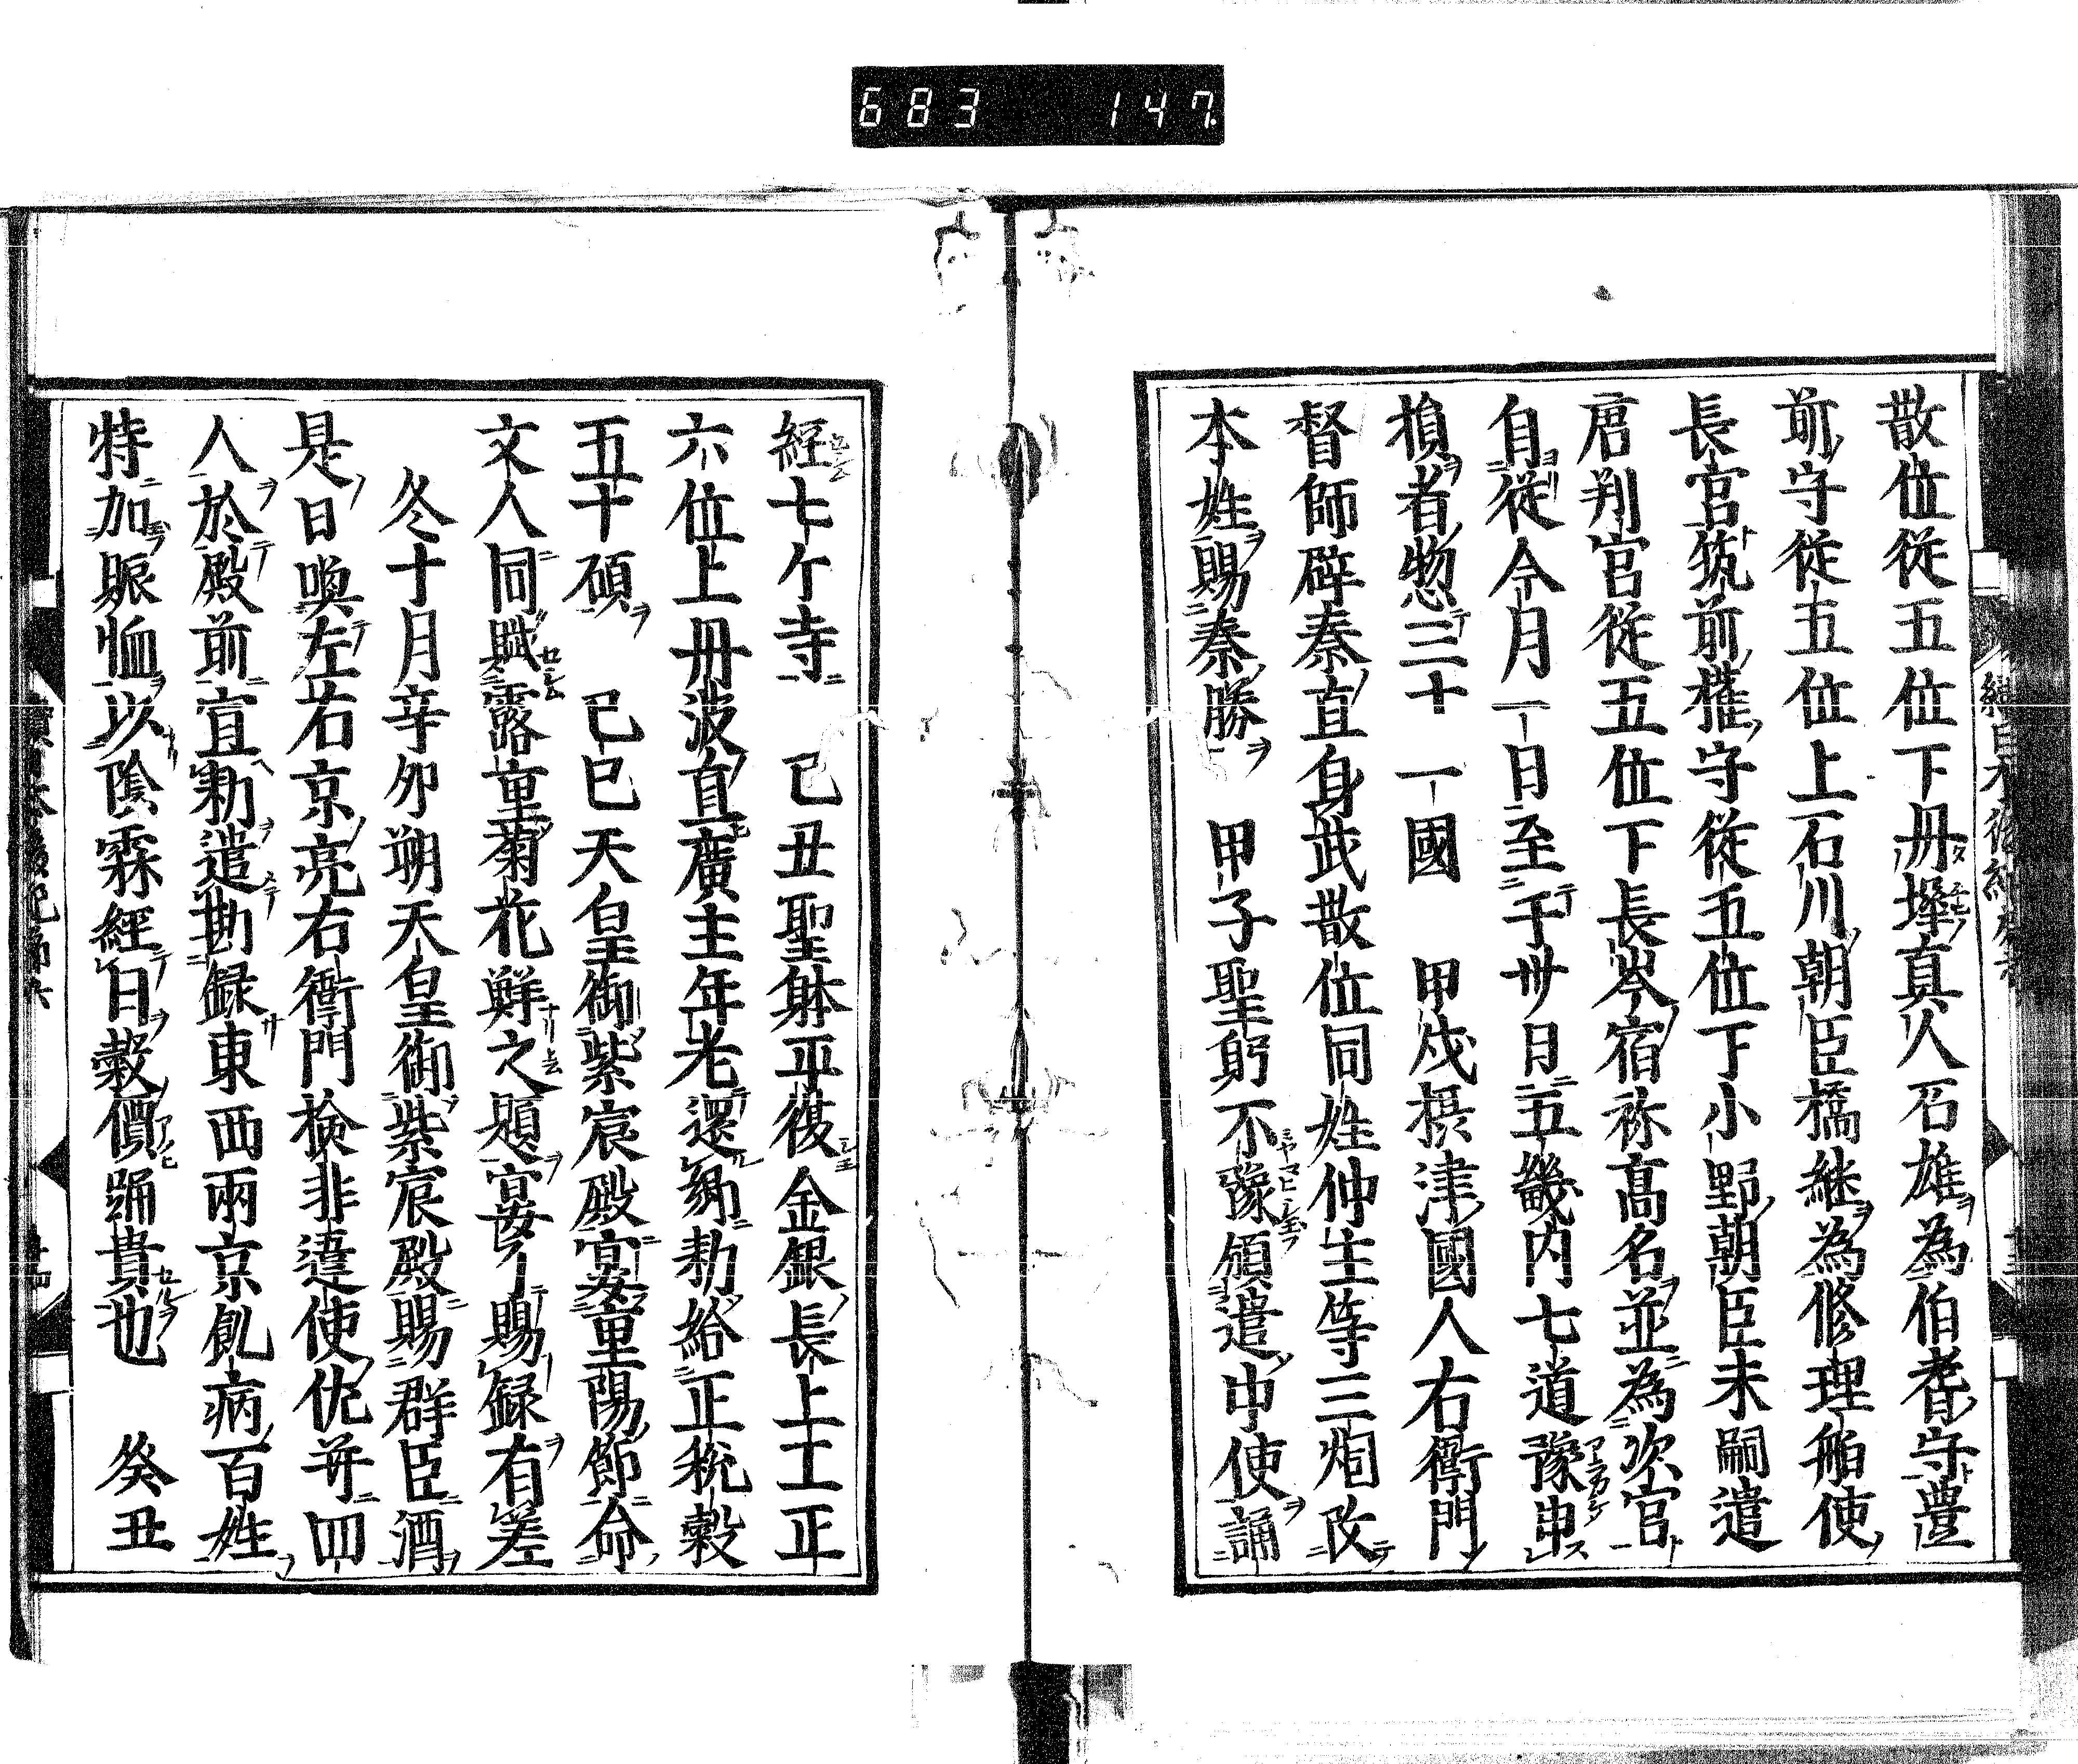 683 147
散位従五位下丹墀真人石雄為伯耆守豊
前守従五位上石川朝臣橋継為修理舶使
長官筑前権守従五位下小野朝臣末嗣遣
唐判官従五位下長岑宿祢高名並為次官
自従今月一日至于卅日五畿内七道豫申
損者惣三十一國　甲戌摂津國人右衛門
督師辟秦直身武散位同姓仲主等三烟改
本姓賜秦勝　甲子聖躬不豫頒遣中使誦
経七ケ寺　己丑聖躰平復金銀長上工正
六位上丹波直廣主年老還郷勅給正税穀
五十碩　己巳天皇御紫宸殿宴重陽節命
文人同賦露重菊花鮮之題宴了賜録有差
冬十月辛夘朔天皇御紫宸殿賜群臣酒
是日喚左右京亮右衛門検非違使佐并四
人於殿前宣勅遣勘録東西兩京飢病百姓
特加賑恤以陰霖經日穀價踊貴也　癸丑